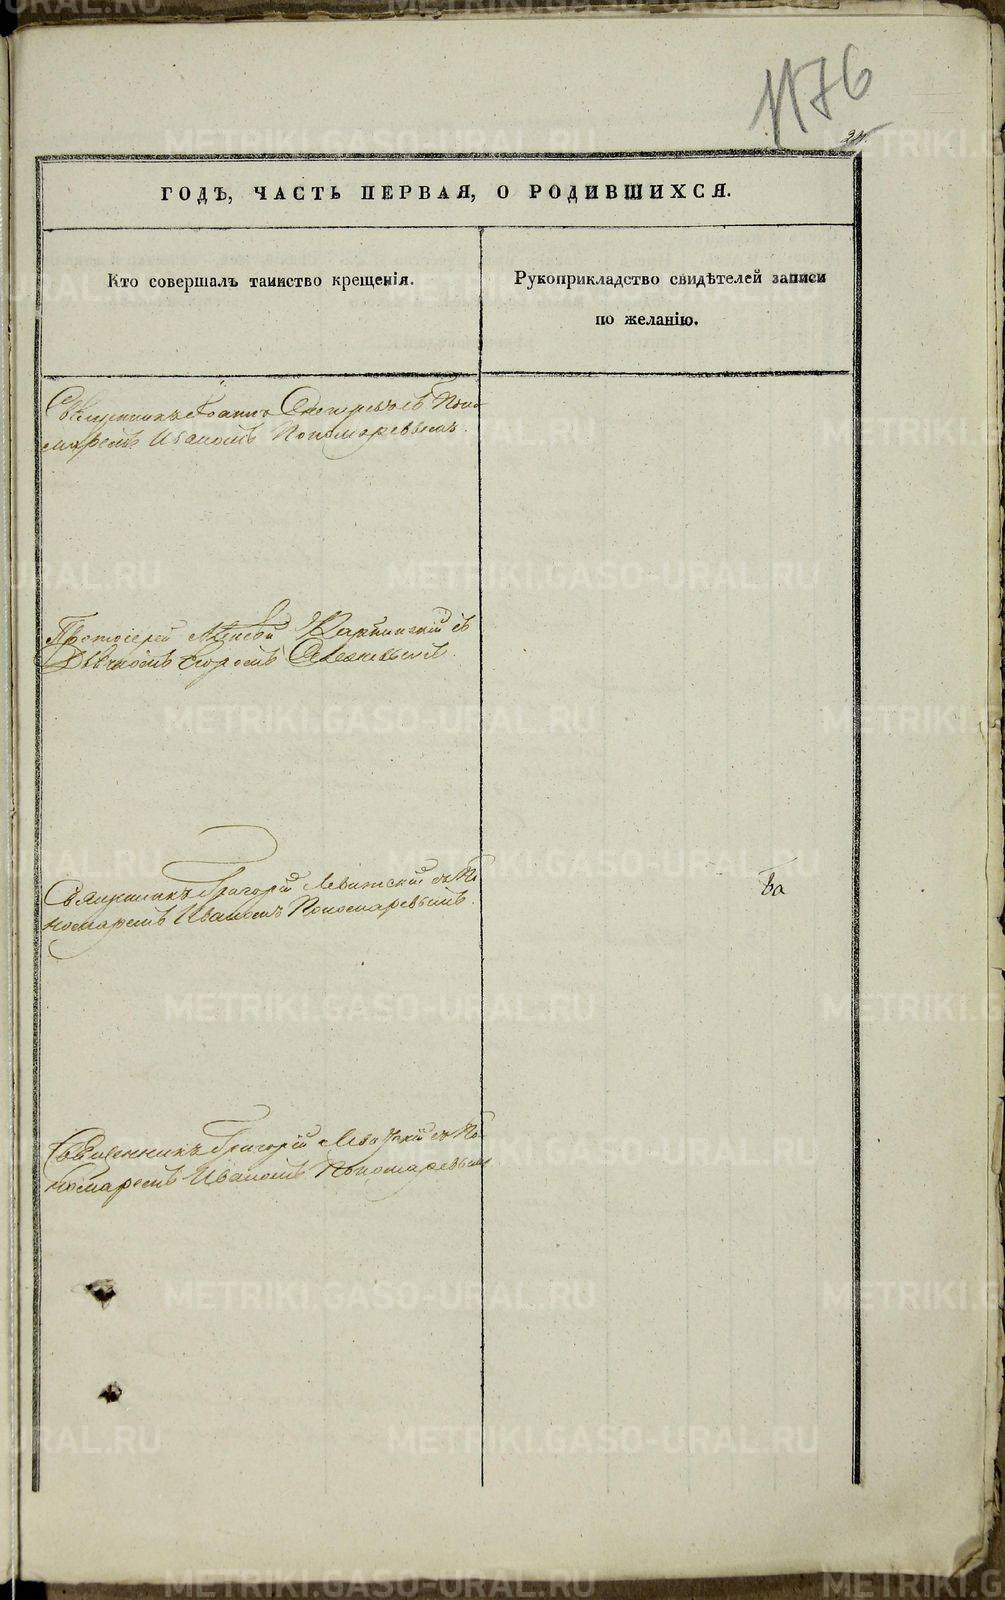 1176
ГОДѢ, ЧАСТЬ ПЕРВАЯ, О РОДИВШИХСЯ.
Кто совершалъ таинство крещенія.
Рукоприкладство свидѣтелей записи
по желанію.
Священникъ Іоаннъ съ Поно-
маремъ Иваномъ Пономаревымъ.
Протоіерей Алексѣй Карпинскій съ
Дьячкомъ
Священникъ Григорій Левитскій съ По
номаремъ Иваномъ Пономаревымъ.
Ба
Священникъ Григорій Левитскій съ По-
номаремъ Иваномъ Пономаревымъ
METRIKI.GASO-URAL.RU